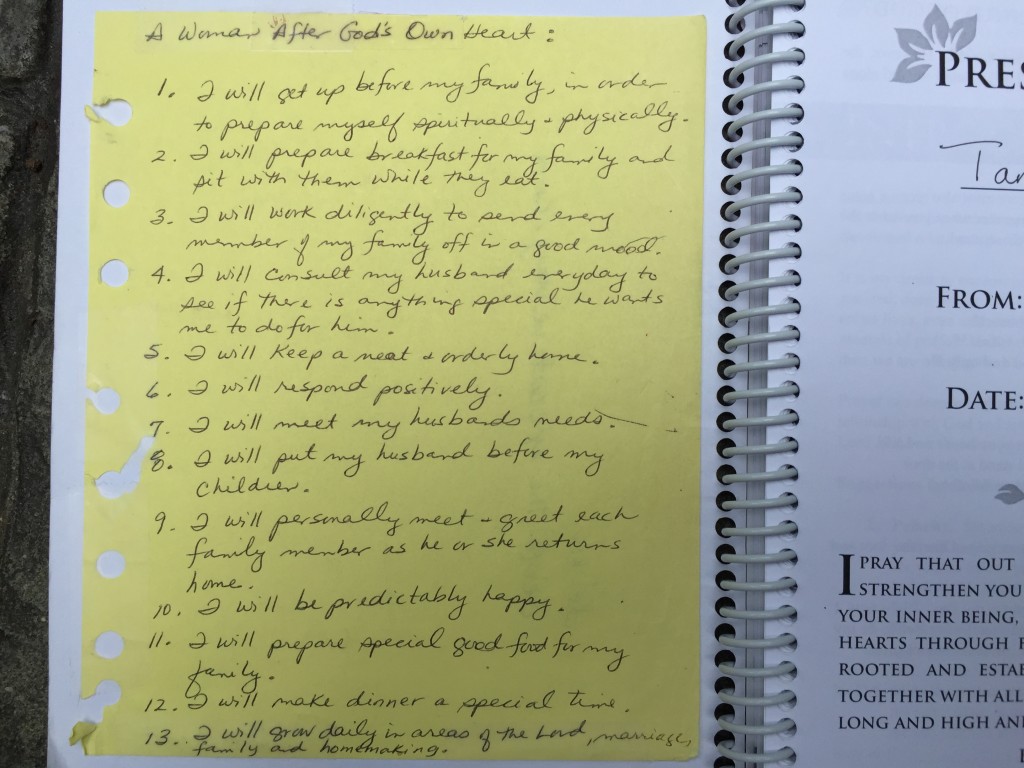 A Woman After God's Own Heart :
1. I will get up before my family, in order
to prepare myself spiritually + physically.
2. I will prepare breakfast for my family and
sit with them while they eat.
3. I will work diligently to send every
member of my family off in a good mood.
4. I will consult my husband everyday to
see if there is anything special he wants
me to do for him.
5. I will keep a neat + orderly home.
6. I will respond positively.
7. I will meet my husbands needs.
8. I will put my husband before my
Children.
9. I will personally meet + greet each
family member as he or she returns
home.
10. I will be predictably happy.
11. I will prepare special good food for my
family.
12. I will make dinner a special time.
13. I will grow daily in areas of the Lord, marriage,
family and homemaking.
PRES
FROM:
DATE:
I PRAY THAT OUT
STRENGTHEN YOU
YOUR INNER BEING,
HEARTS THROUGH
ROOTED AND ESTAB
TOGETHER WITH ALL
LONG AND HIGH AN